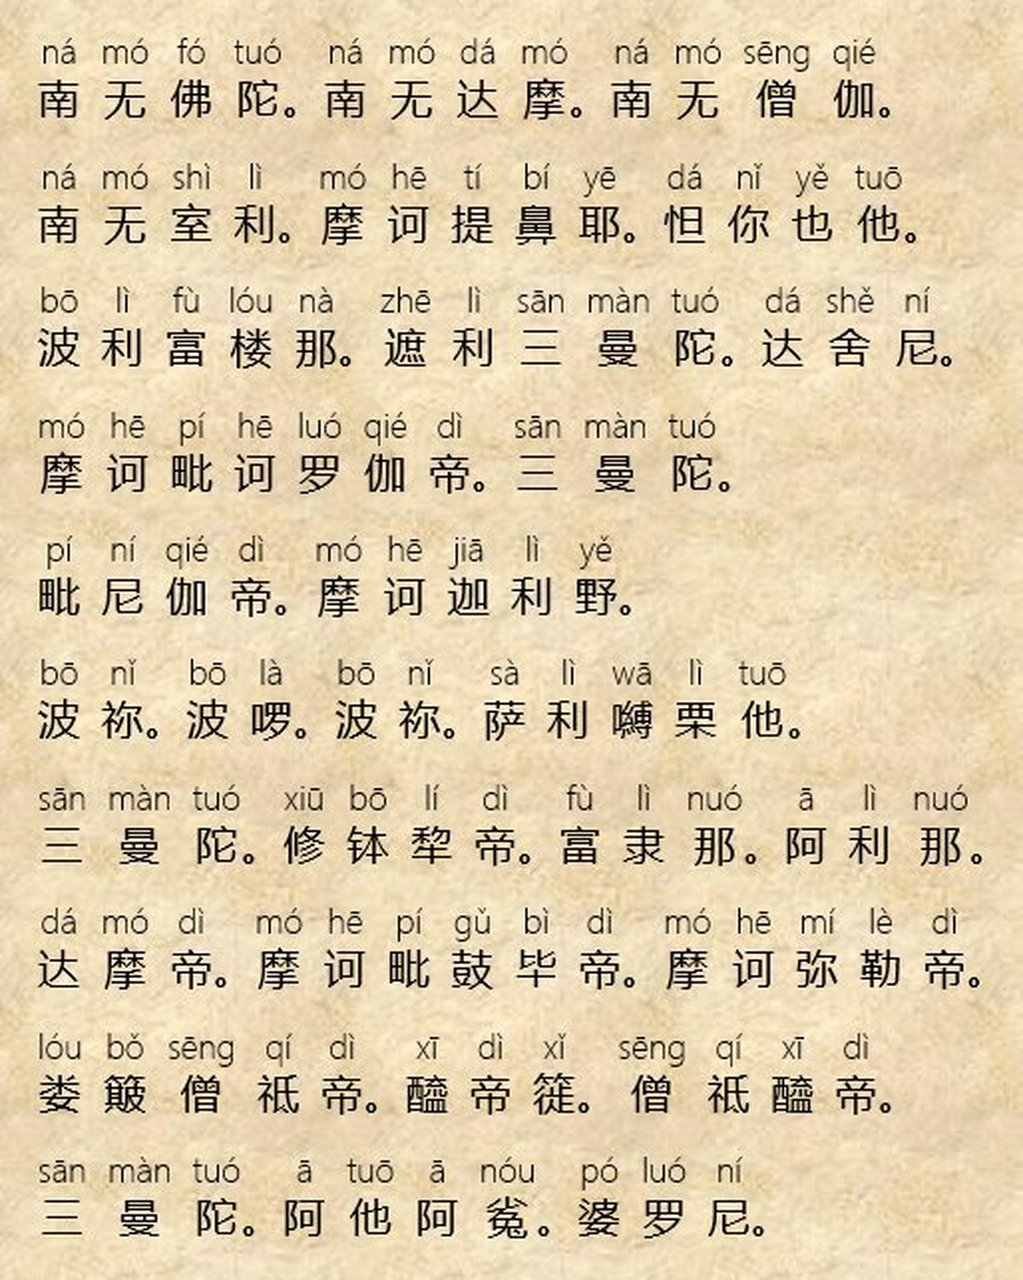 ná mó fó tuó ná mó dá mó ná mó sēng qié
南无佛陀。南无达摩。南无僧伽。
ná mó shì lì mó hē tí bí yē dá nǐ yě tuō
南无室利。摩诃提鼻耶。怛你也他。
bō lì fù lóu nà zhē lì sān màn tuó dá shě ní
波利富楼那。遮利三曼陀。达舍尼。
mó hē pí hē luó qié dì sān màn tuó
摩诃毗诃罗伽帝。三曼陀。
pí ní qié dì mó hē jiā lì yě
毗尼伽帝。摩诃迦利野。
bō nǐ bō là bō nǐ sà lì wā lì tuō
波祢。波啰。波祢。萨利嚩栗他。
sān màn tuó xiū bō lí dì fù lì nuó ā lì nuó
三曼陀。修钵犂帝。富隶那。阿利那。
dá mó dì mó hē pí gǔ bì dì mó hē mí lè dì
达摩帝。摩诃毗鼓毕帝。摩诃弥勒帝。
lóu bǒ sēng qí dì xī dì xǐ sēng qí xī dì
娄簸僧祗帝。醯帝簁。僧祗醯帝。
sān màn tuó ā tuō ā nóu pó luó ní
三曼陀。阿他阿㝹。婆罗尼。